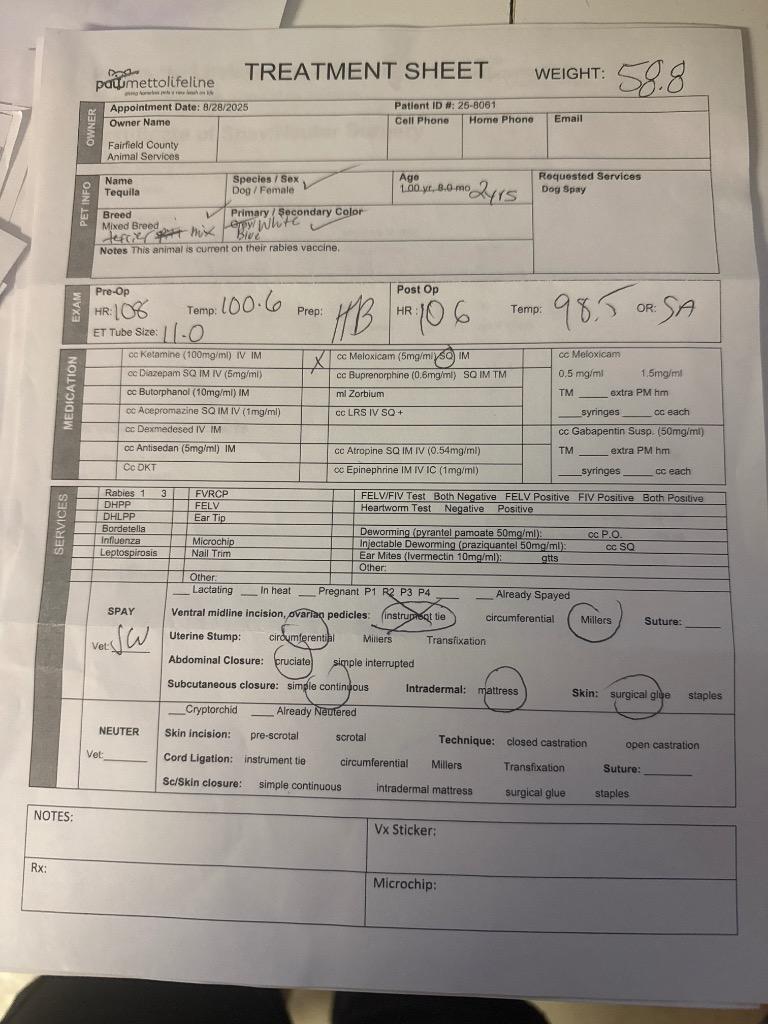 pawmettolifeline
giving homeless pets a new leash on life
TREATMENT SHEET
WEIGHT: 58.8
OWNER
Appointment Date: 8/28/2025 Patient ID #: 25-8061
Owner Name Cell Phone Home Phone Email
Fairfield County
Animal Services
PET INFO
Name Species / Sex Age Requested Services
Tequila Dog / Female 1.00 yr, 8.0 mo 2yrs Dog Spay
Breed Primary / Secondary Color
Mixed Breed Gray/ White
terrier mix Blue
Notes This animal is current on their rabies vaccine.
EXAM
Pre-Op Post Op
HR: 108 Temp: 100.6 Prep: HB HR: 106 Temp: 98.5 OR: SA
ET Tube Size: 11.0
MEDICATION
cc Ketamine (100mg/ml) IV IM X cc Meloxicam (5mg/ml) SQ IM cc Meloxicam
cc Diazepam SQ IM IV (5mg/ml) cc Buprenorphine (0.6mg/ml) SQ IM TM 0.5 mg/ml 1.5mg/ml
cc Butorphanol (10mg/ml) IM ml Zorbium TM ____ extra PM hm
cc Acepromazine SQ IM IV (1mg/ml) cc LRS IV SQ + ____syringes ____ cc each
cc Dexmedesed IV IM cc Gabapentin Susp. (50mg/ml)
cc Antisedan (5mg/ml) IM cc Atropine SQ IM IV (0.54mg/ml) TM ____ extra PM hm
Cc DKT cc Epinephrine IM IV IC (1mg/ml) ____syringes ____ cc each
SERVICES
Rabies 1 3 FVRCP FELV/FIV Test Both Negative FELV Positive FIV Positive Both Positive
DHPP FELV Heartworm Test Negative Positive
DHLPP Ear Tip
Bordetella Deworming (pyrantel pamoate 50mg/ml): cc P.O.
Influenza Microchip Injectable Deworming (praziquantel 50mg/ml): cc SQ
Leptospirosis Nail Trim Ear Mites (Ivermectin 10mg/ml): gtts
Other:
Other:
___ Lactating ___ In heat ___ Pregnant P1 P2 P3 P4 ___ Already Spayed
SPAY Ventral midline incision, ovarian pedicles: instrument tie circumferential Millers Suture: _____
Vet: SW Uterine Stump: circumferential Millers Transfixation
Abdominal Closure: cruciate simple interrupted
Subcutaneous closure: simple continuous Intradermal: mattress Skin: surgical glue staples
___Cryptorchid ___ Already Neutered
NEUTER Skin incision: pre-scrotal scrotal Technique: closed castration open castration
Vet:______ Cord Ligation: instrument tie circumferential Millers Transfixation Suture: ______
Sc/Skin closure: simple continuous intradermal mattress surgical glue staples
NOTES: Vx Sticker:
Rx: Microchip: